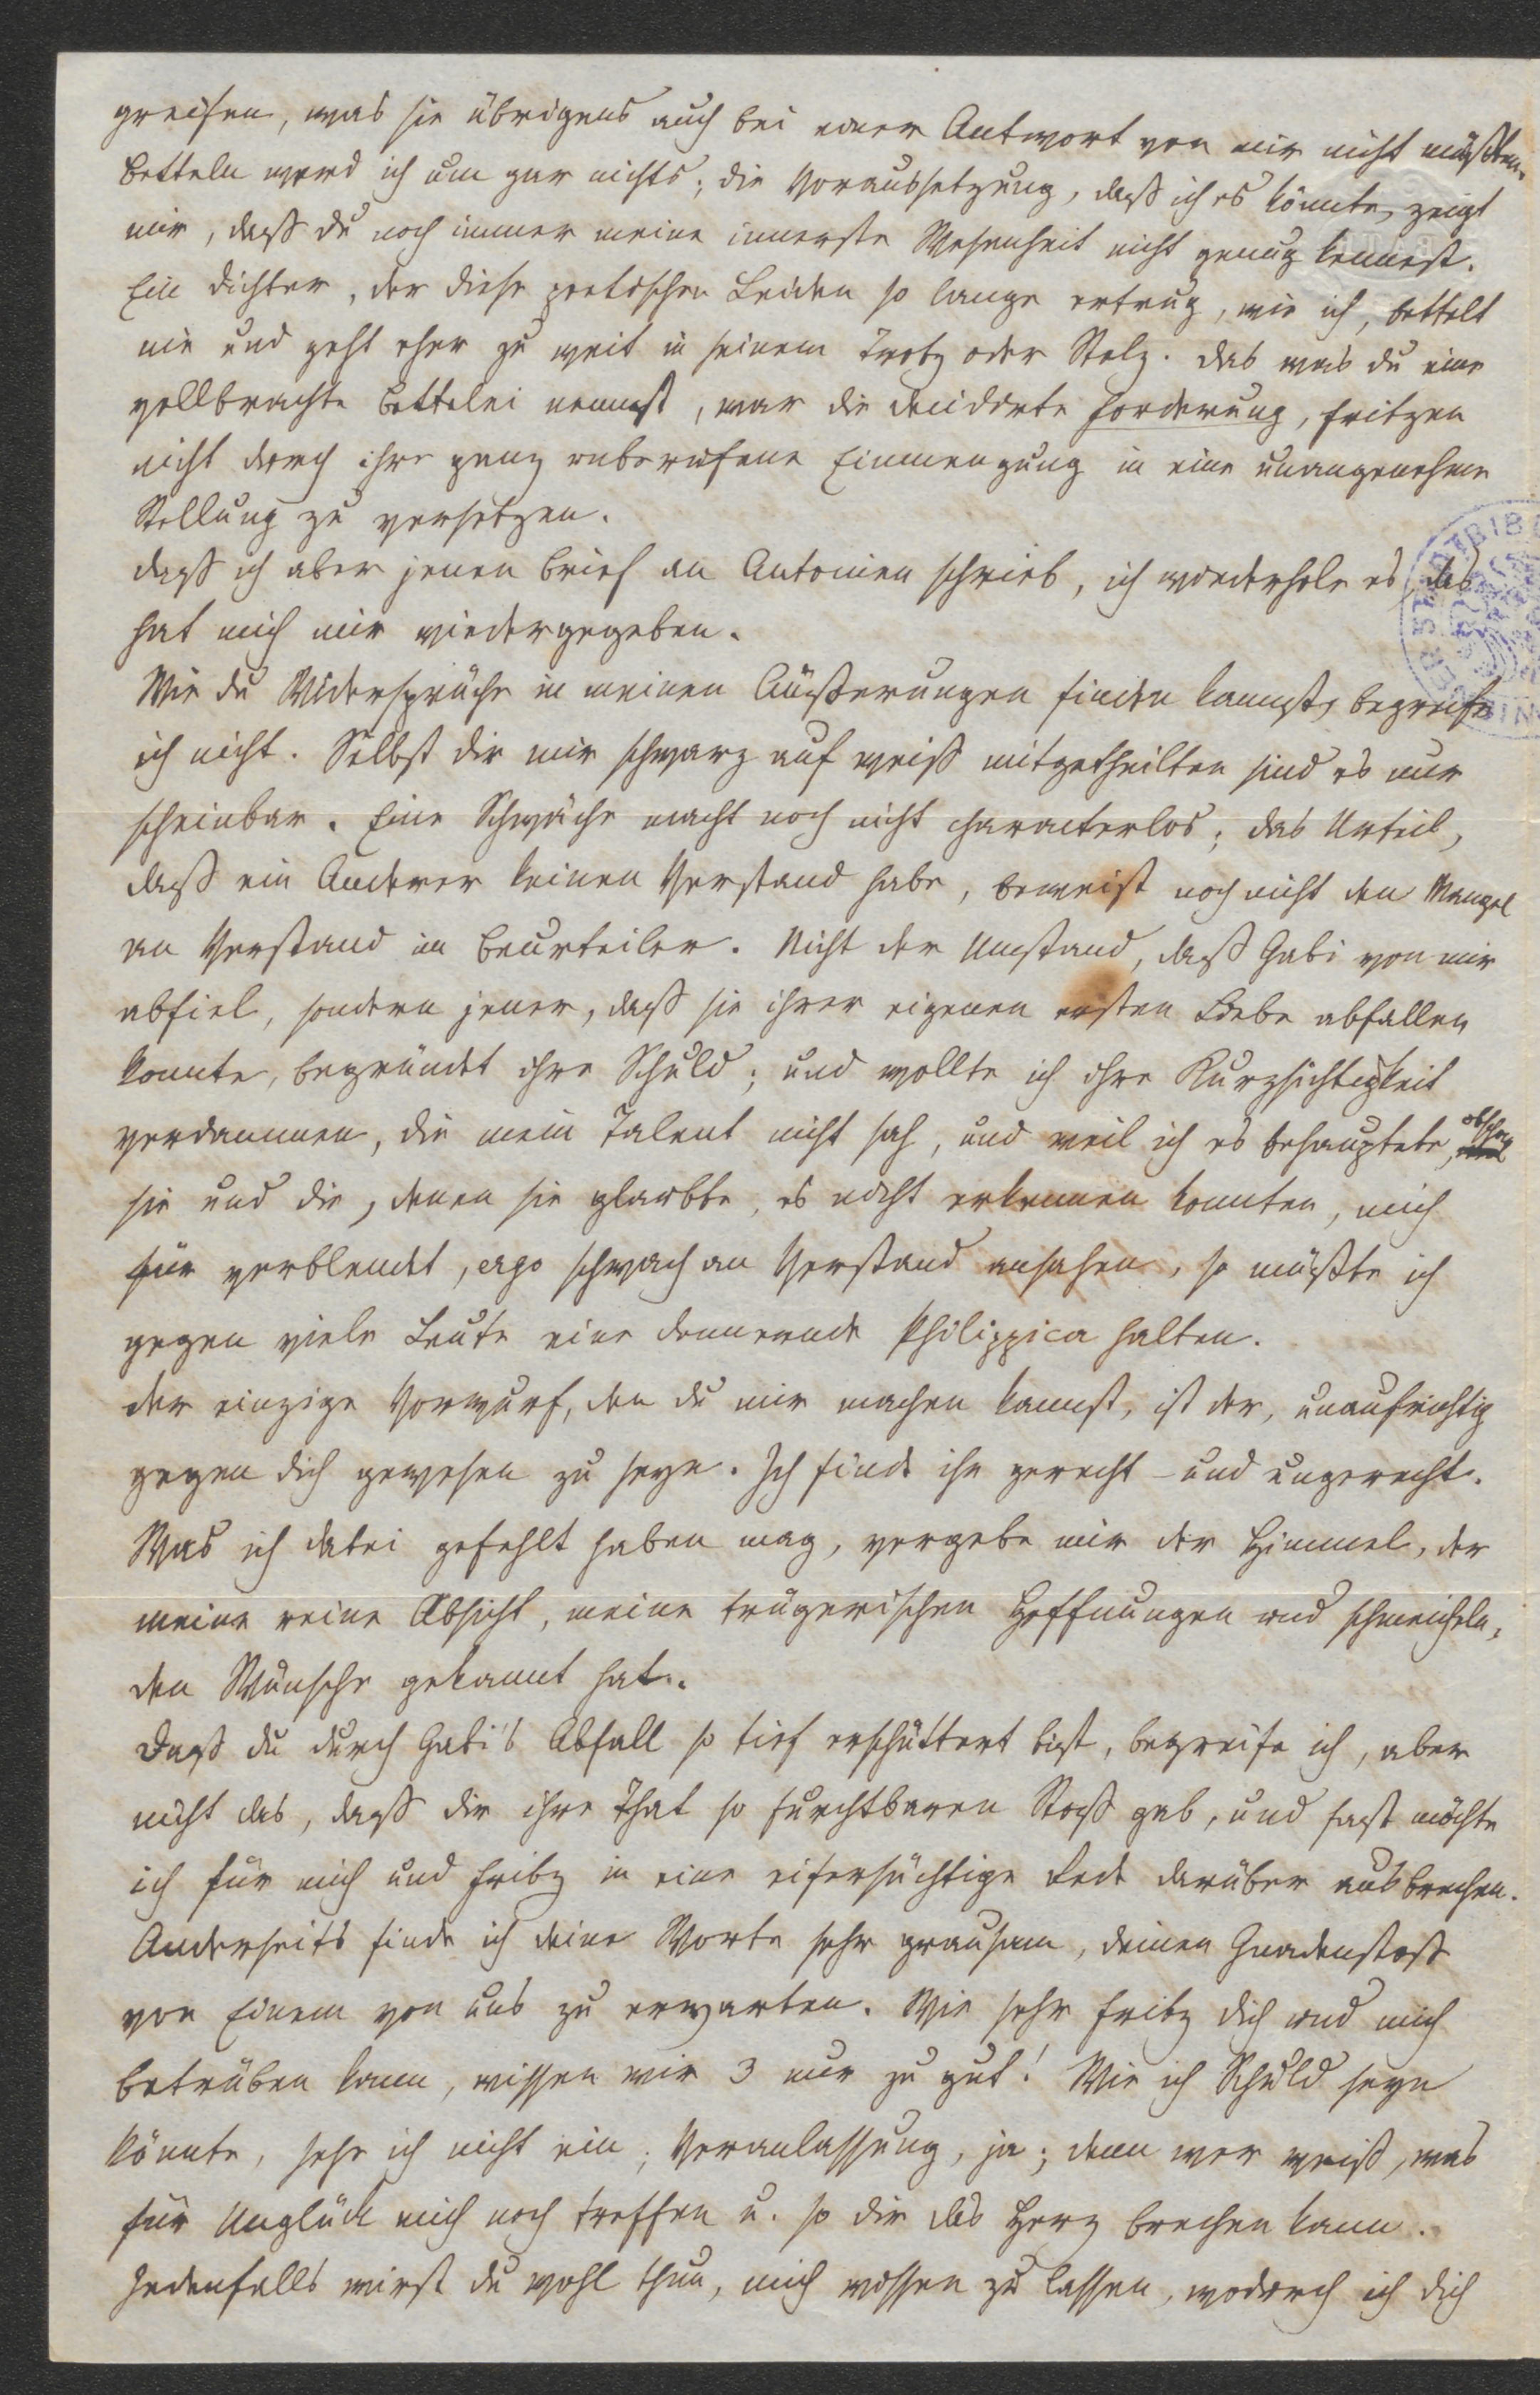 greifen, was sie übrigens auch bei einer Antwort von mir nicht müßten.
Betteln werd ich um gar nichts; die Voraussetzung, daß ich es könnte, zeigt
mir, daß du noch immer meine innerste Wesenheit nicht genug kennest.
Ein Dichter, der diese poetischen Leiden so lange ertrug, wie ich, bettelt
nie und geht eher zu weit in seinem Trotz oder Stolz. Das was du eine
vollbrachte Bettelei nennst, war die decidirte Forderung, Fritzen
nicht durch ihre ganz unberufene Einmengung in eine unangenehme
Stellung zu versetzen.
Daß ich aber jenen Brief an Antonien schrieb, ich wiederhole es, das
hat mich mir wiedergegeben.
Wie du Widersprüche in meinen Äußerungen finden kannst, begreife
ich nicht. Selbst die mir schwarz auf weiss mitgetheilten sind es nur
scheinbar. Eine Schwäche macht noch nicht characterlos; das Urteil,
daß ein Anderer keinen Verstand habe, beweist noch nicht den Mangel
an Verstand im Beurteiler. Nicht der Umstand, daß Gabi von mir
abfiel, sondern jener, daß sie ihrer eigenen ersten Liebe abfallen
konnte, begründet ihre Schuld; und wollte ich ihre Kurzsichtigkeit
verdammen, die mein Talent nicht sah, und weil ich es behauptete, obschon
sie und die, denen sie glaubte, es nicht erkennen konnten, mich
für verblendet, ergo schwach an Verstand ansahen, so müßte ich
gegen viele Leute eine donnernde Philippica halten.
Der einzige Vorwurf, den du mir machen kannst, ist der, unaufrichtig
gegen dich gewesen zu seyn. Ich finde ihn gerecht – und ungerecht.
Was ich dabei gefehlt haben mag, vergebe mir der Himmel, der
meine reine Absicht, meine trügerischen Hoffnungen und schmeicheln-
den Wünsche gekannt hat.
Daß du durch Gabi's Abfall so tief erschüttert bist, begreife ich, aber
nicht das, daß dir ihre That so furchtbaren Stoß gab, und fast möchte
ich für mich und Fritz in eine eifersüchtige Rede darüber ausbrechen.
Anderseits finde ich deine Worte sehr grausam, deinen Gnadenstoß
von Einem von uns zu erwarten. Wie sehr Fritz dich und mich
betrüben kann, wissen wir 3 nur zu gut! Wie ich Schuld seyn
könnte, sehe ich nicht ein; Veranlassung, ja; denn wer weiß, was
für Unglück mich noch treffen u. so dir das Herz brechen kann.
Jedenfalls wirst du wohl thun, mich wissen zu lassen, wodurch ich dich